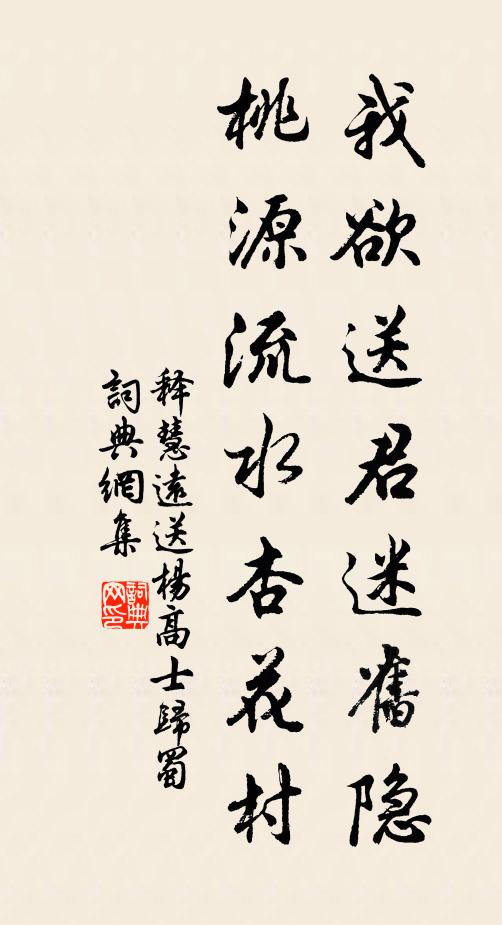 我欲送君迷舊隐
桃源流水杏花村
释慧遠送楊高士歸蜀
詞典網集
詞典网印